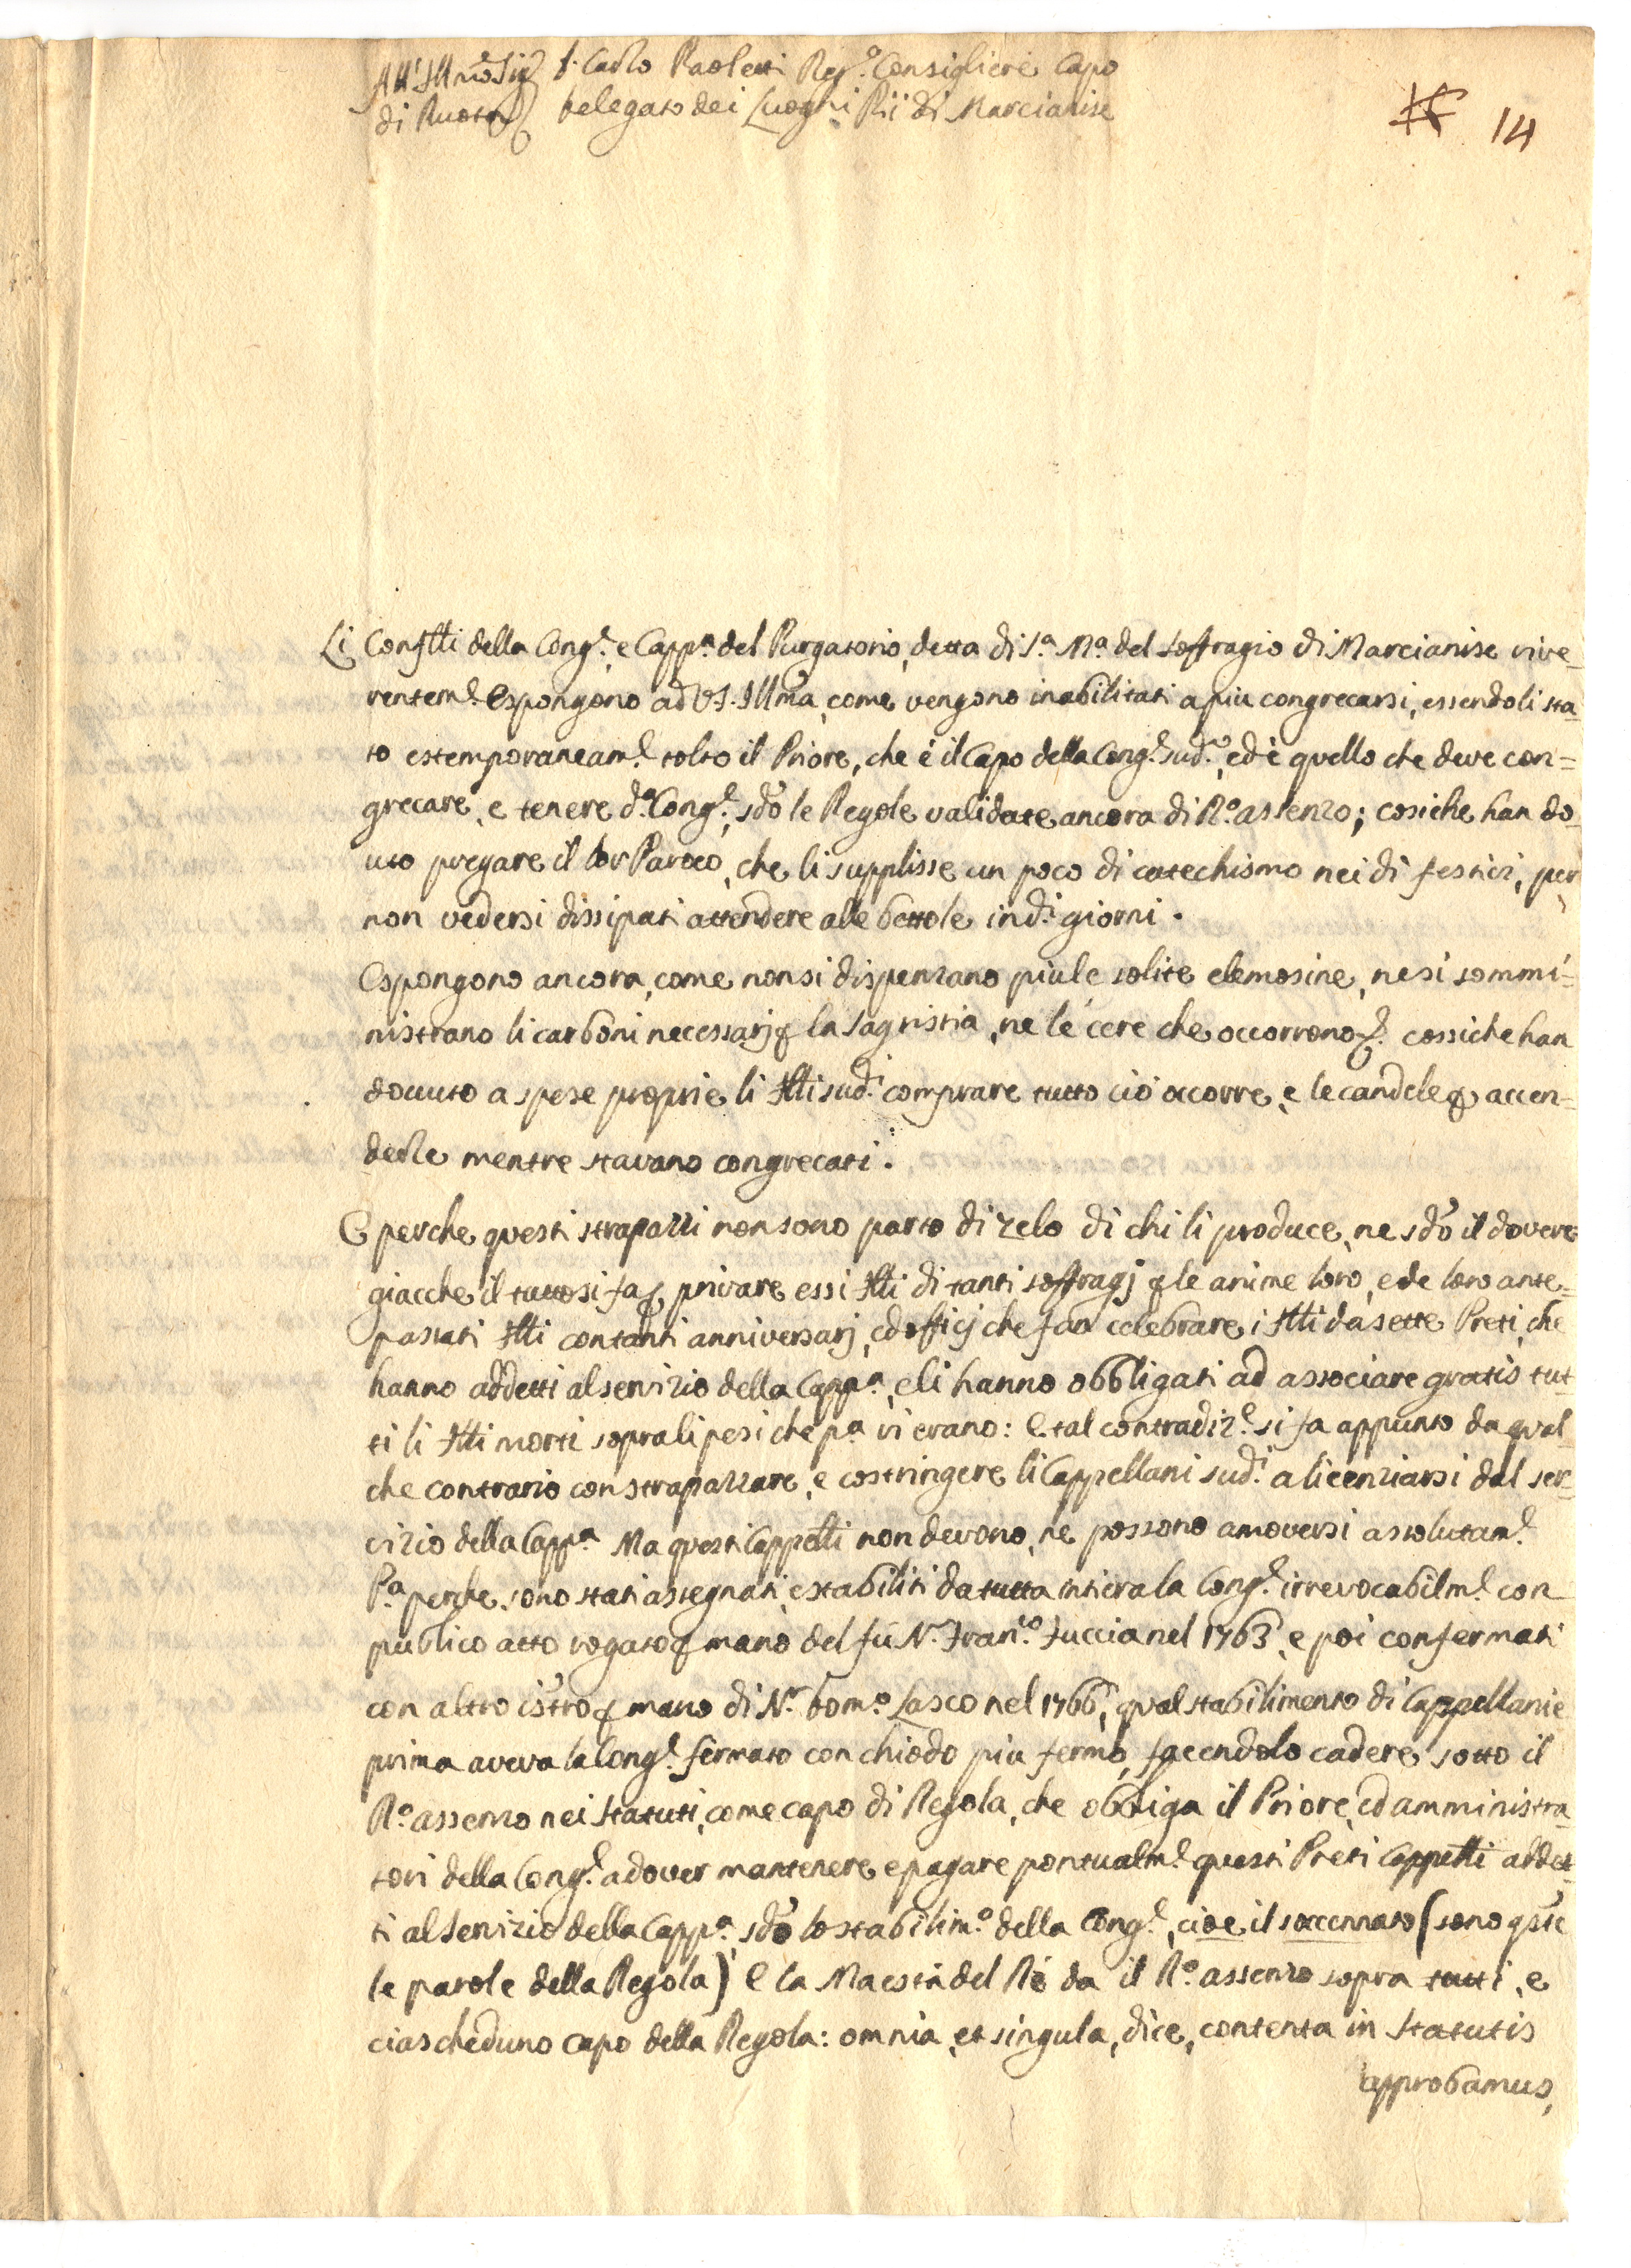 All'Illmo Sig.r D. Carlo Paoletti Reg.o Consigliere Capo
di Ruota Delegato dei Luoghi Pii di Marcianise
14
Li Confltti della Cong.e, e Capp.a del Purgatorio, detta di S.a M.a del Soffragio di Marcianise rive=
rentem.e Espongono ad V.S. Illma, come vengono inabilitati a piu congrecarsi, essendoli sta=
to estemporaneam.e tolto il Priore, che é il Capo della Cong.e sud.a, ed é quello che deve con=
grecare, e tenere d.a Cong.e, sdo le Regole validate ancora di R.o assenzo; cosiche han do=
uto pregare il lor Paroco, che li supplisse un poco di catechismo nei di festivi, per
non vedersi dissipati attendere alle bettole in d.i giorni.
Espongono ancora, come non si dispenzano piu le solite elemosine, ne si sommi=
nistrano li carboni necessarj p la Sagristia, ne le cere che occorrono, cossiche han
dovuto a spese proprie li fltti sud.i comprare tutto ció occorre, e le candele p accen=
derle mentre stavano congrecati.
E perche questi strapazzi non sono parto di zelo di chi li produce, ne sdo il dovere
giacche il tutto si fa p privare essi fltti di tanti soffragj p le anime loro, e de loro ante=
passati fltti con tanti anniversarj, ed officj che fan celebrare i fltti da sette Preti, che
hanno addetti al servizio della Capp.a, e li hanno obbligati ad associare gratis tut=
ti li fltti morti sopra li pesi che p.a vi erano: E tal contradiz.e si fa appunto da qual=
che contrario con strapazzare, e costringere li Cappellani sud.i a licenziarsi dal ser=
vizio della Capp.a Ma questi Cappelli non devono, ne possono amoversi assolutam.e
P.a perche sono stati assegnati, e stabiliti da tutta intiera la Cong.e irrevocabilm.e con
publico atto rogato p mano del fú N.r Fran.co Tuccia nel 1763, e poi confermati
con altro istro p mano di N.r Dom.o Lasco nel 1766, qual stabilimento di Cappellanie
prima aveva la Cong.e fermato con chiodo piu fermo, facendolo cadere sotto il
R.o assenzo nei Statuti, come capo di Regola, che obbliga il Priore, ed amministra=
tori della Cong.e a dover mantenere, e pagare pontualm.e questi Preti Cappelli addet=
ti al Servizio della Capp.a, sdo lo stabilim.o della Cong.e, cioe il soccennato (sono qste
le parole della Regola) E la Maestá del Ré da il R.o assenzo sopra tutti, e
ciascheduno capo della Regola: omnia, et singula, dice, contenta in Statutis
approbamus,